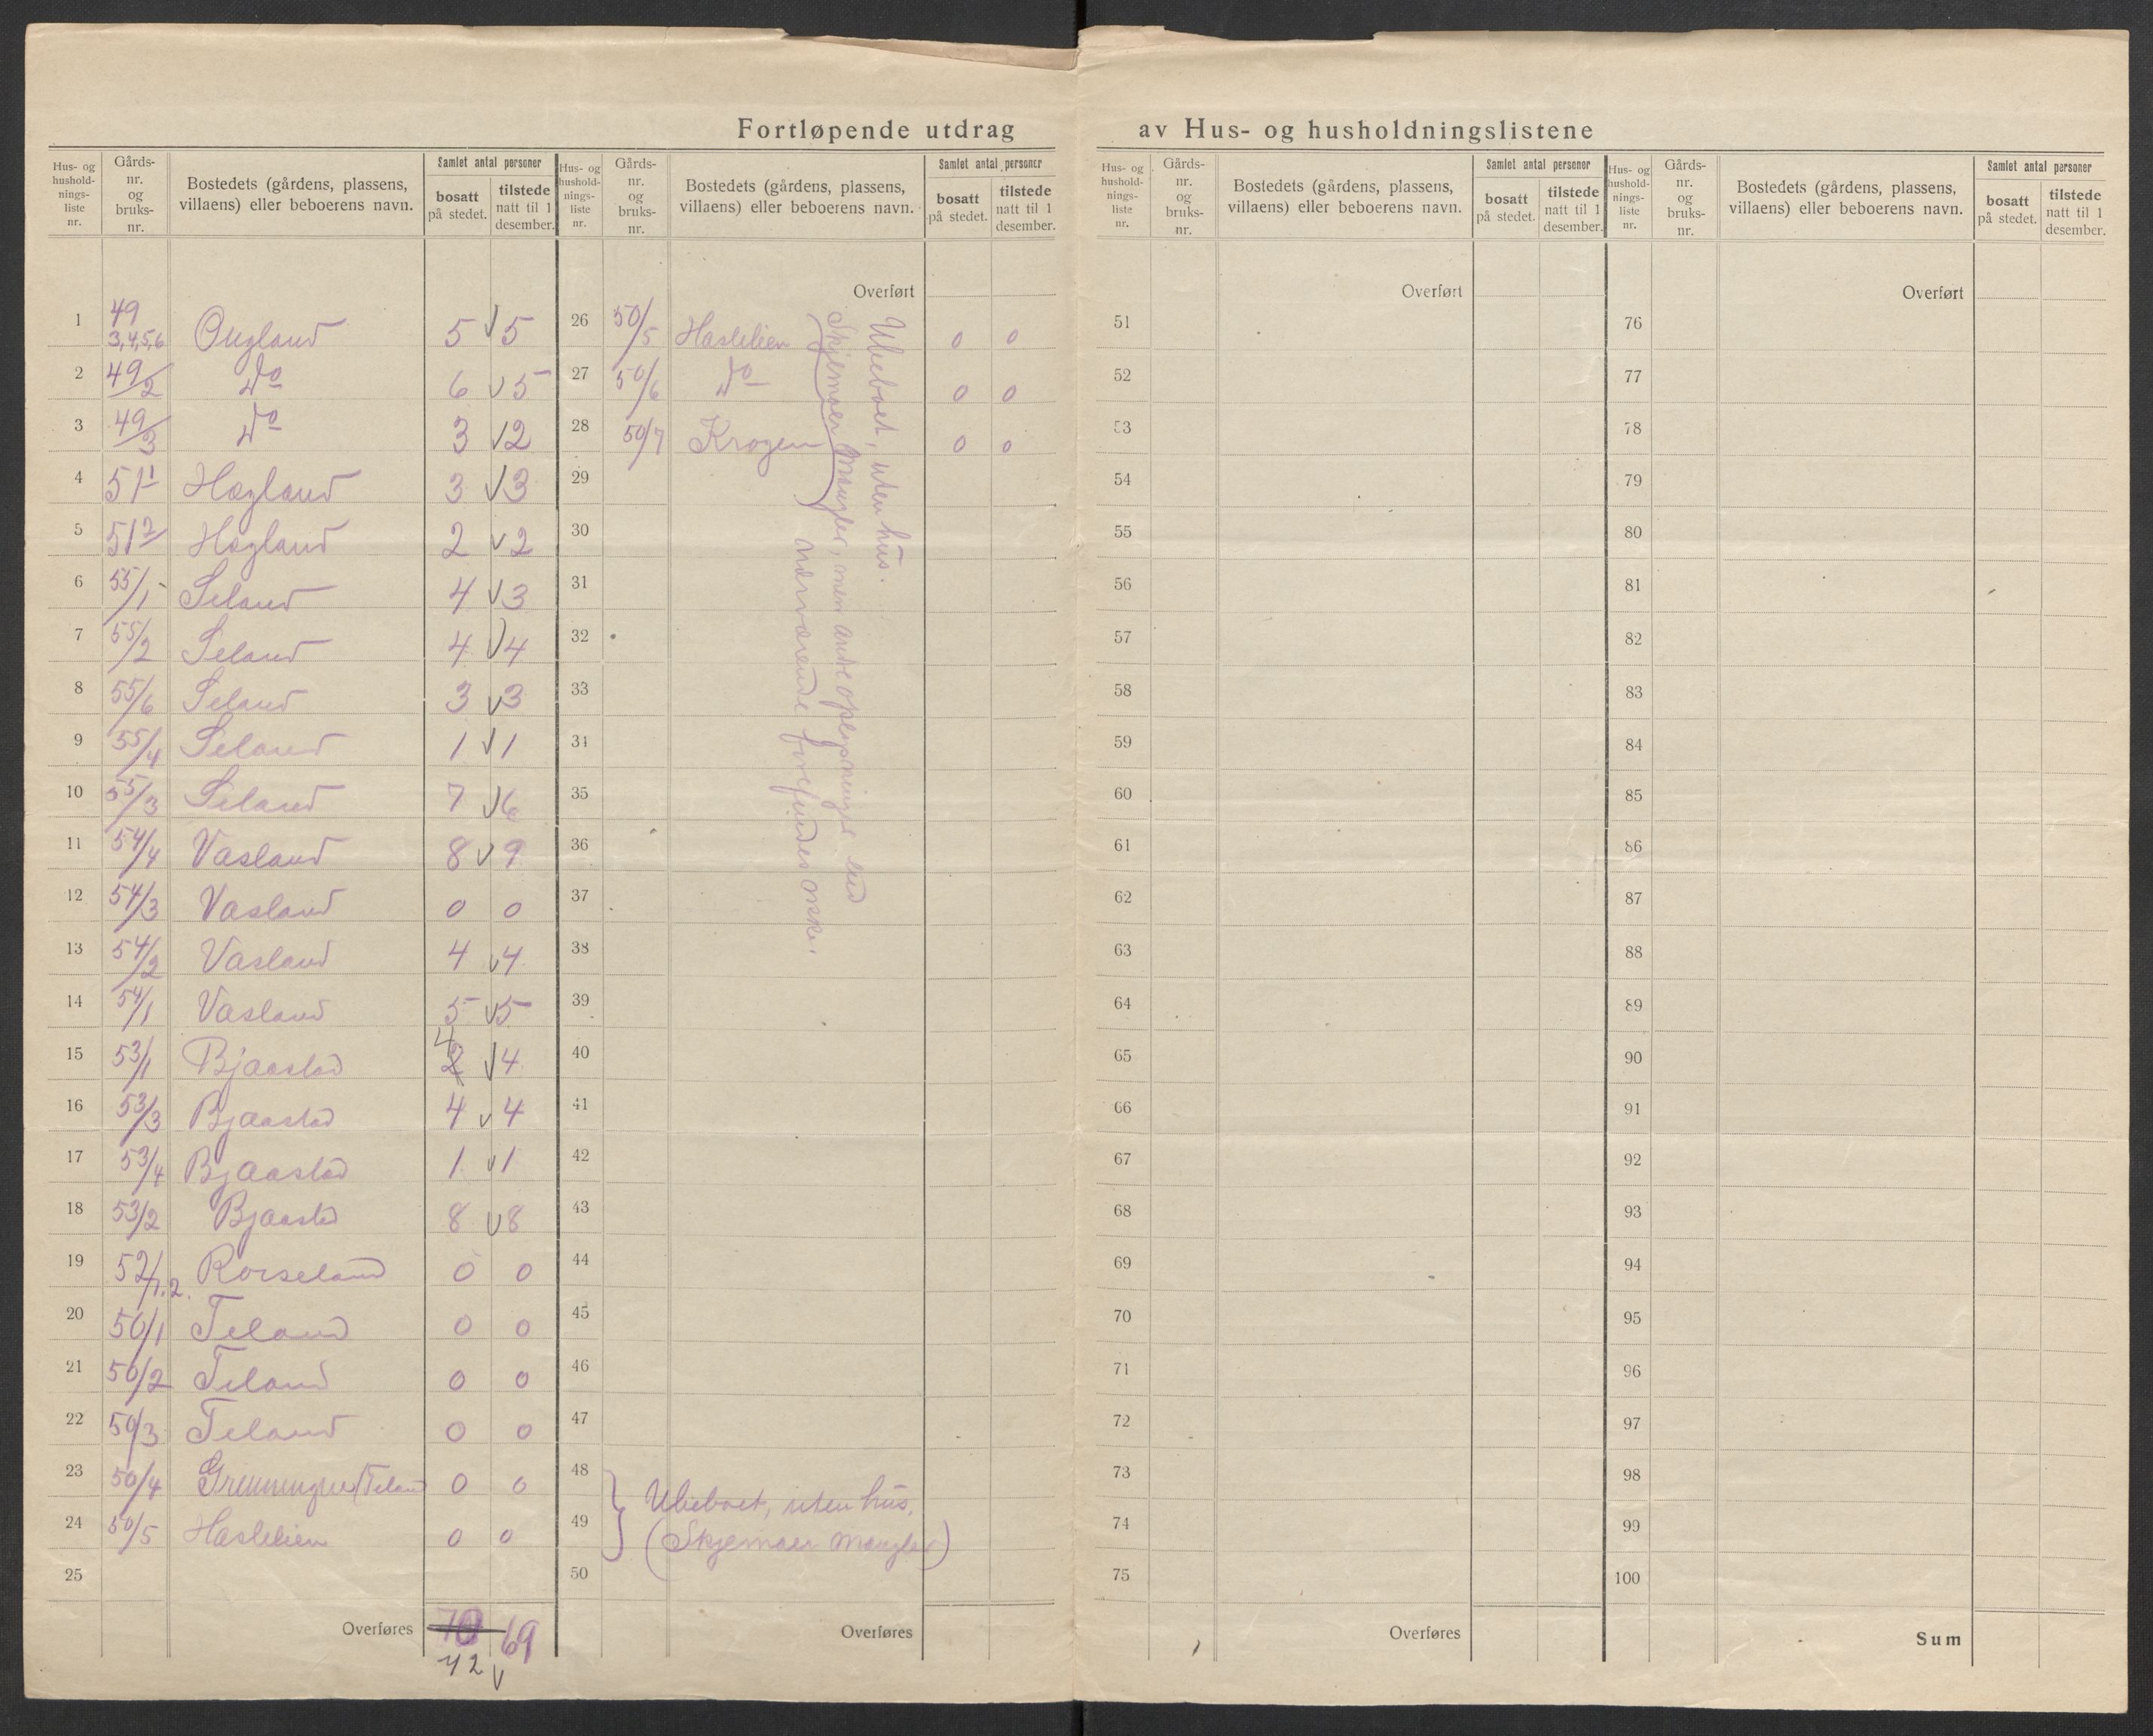 Fortløpende utdrag av Hus- og husholdningslistene
Hus- og hushold-nings-liste nr. | Gårds-nr. og bruks-nr. | Bostedets (gårdens, plassens, villaens) eller beboerens navn. | Samlet antal personer | bosatt på stedet. | tilstede natt til 1 desember.
1 | 49 3,4,5,6 | Ougland | 5 | 5
2 | 49/2 | do | 6 | 5
3 | 49/3 | do | 3 | 2
4 | 51/1 | Høgland | 3 | 3
5 | 51/2 | Høgland | 2 | 2
6 | 55/1 | Seland | 4 | 3
7 | 55/2 | Seland | 4 | 4
8 | 55/6 | Seland | 3 | 3
9 | 55/4 | Seland | 1 | 1
10 | 55/3 | Seland | 7 | 6
11 | 54/4 | Vasland | 8 | 9
12 | 54/3 | Vasland | 0 | 0
13 | 54/2 | Vasland | 4 | 4
14 | 54/1 | Vasland | 5 | 5
15 | 53/1 | Bjaastad | 2 4 | 4
16 | 53/3 | Bjaastad | 4 | 4
17 | 53/4 | Bjaastad | 1 | 1
18 | 53/2 | Bjaastad | 8 | 8
19 | 52/1.2. | Rorseland | 0 | 0
20 | 50/1 | Teland | 0 | 0
21 | 50/2 | Teland | 0 | 0
22 | 50/3 | Teland | 0 | 0
23 | 50/4 | (Teland | 0 | 0
24 | 50/5 | Haslelien | 0 | 0
25
Overføres | 70 | 69
72
Hus- og hushold-nings-liste nr. | Gårds-nr. og bruks-nr. | Bostedets (gårdens, plassens, villaens) eller beboerens navn. | Samlet antal personer | bosatt på stedet. | tilstede natt til 1 desember.
Overført
26 | 50/5 | Haslelien | 0 | 0
27 | 50/6 | do | 0 | 0
28 | 50/7 | Krogen | 0 | 0
Ubeboet, uten hus.
Skjemaer mangler, men andre oplysninger end
nærværende forefindes ikke.
29
30
31
32
33
34
35
36
37
38
39
40
41
42
43
44
45
46
47
48
49
50
Ubeboet, uten hus.
(Skjemaer mangler)
Overføres
Hus- og hushold-nings-liste nr. | Gårds-nr. og bruks-nr. | Bostedets (gårdens, plassens, villaens) eller beboerens navn. | Samlet antal personer | bosatt på stedet. | tilstede natt til 1 desember.
Overført
51
52
53
54
55
56
57
58
59
60
61
62
63
64
65
66
67
68
69
70
71
72
73
74
75
Overføres
Hus- og hushold-nings-liste nr. | Gårds-nr. og bruks-nr. | Bostedets (gårdens, plassens, villaens) eller beboerens navn. | Samlet antal personer | bosatt på stedet. | tilstede natt til 1 desember.
Overført
76
77
78
79
80
81
82
83
84
85
86
87
88
89
90
91
92
93
94
95
96
97
98
99
100
Sum